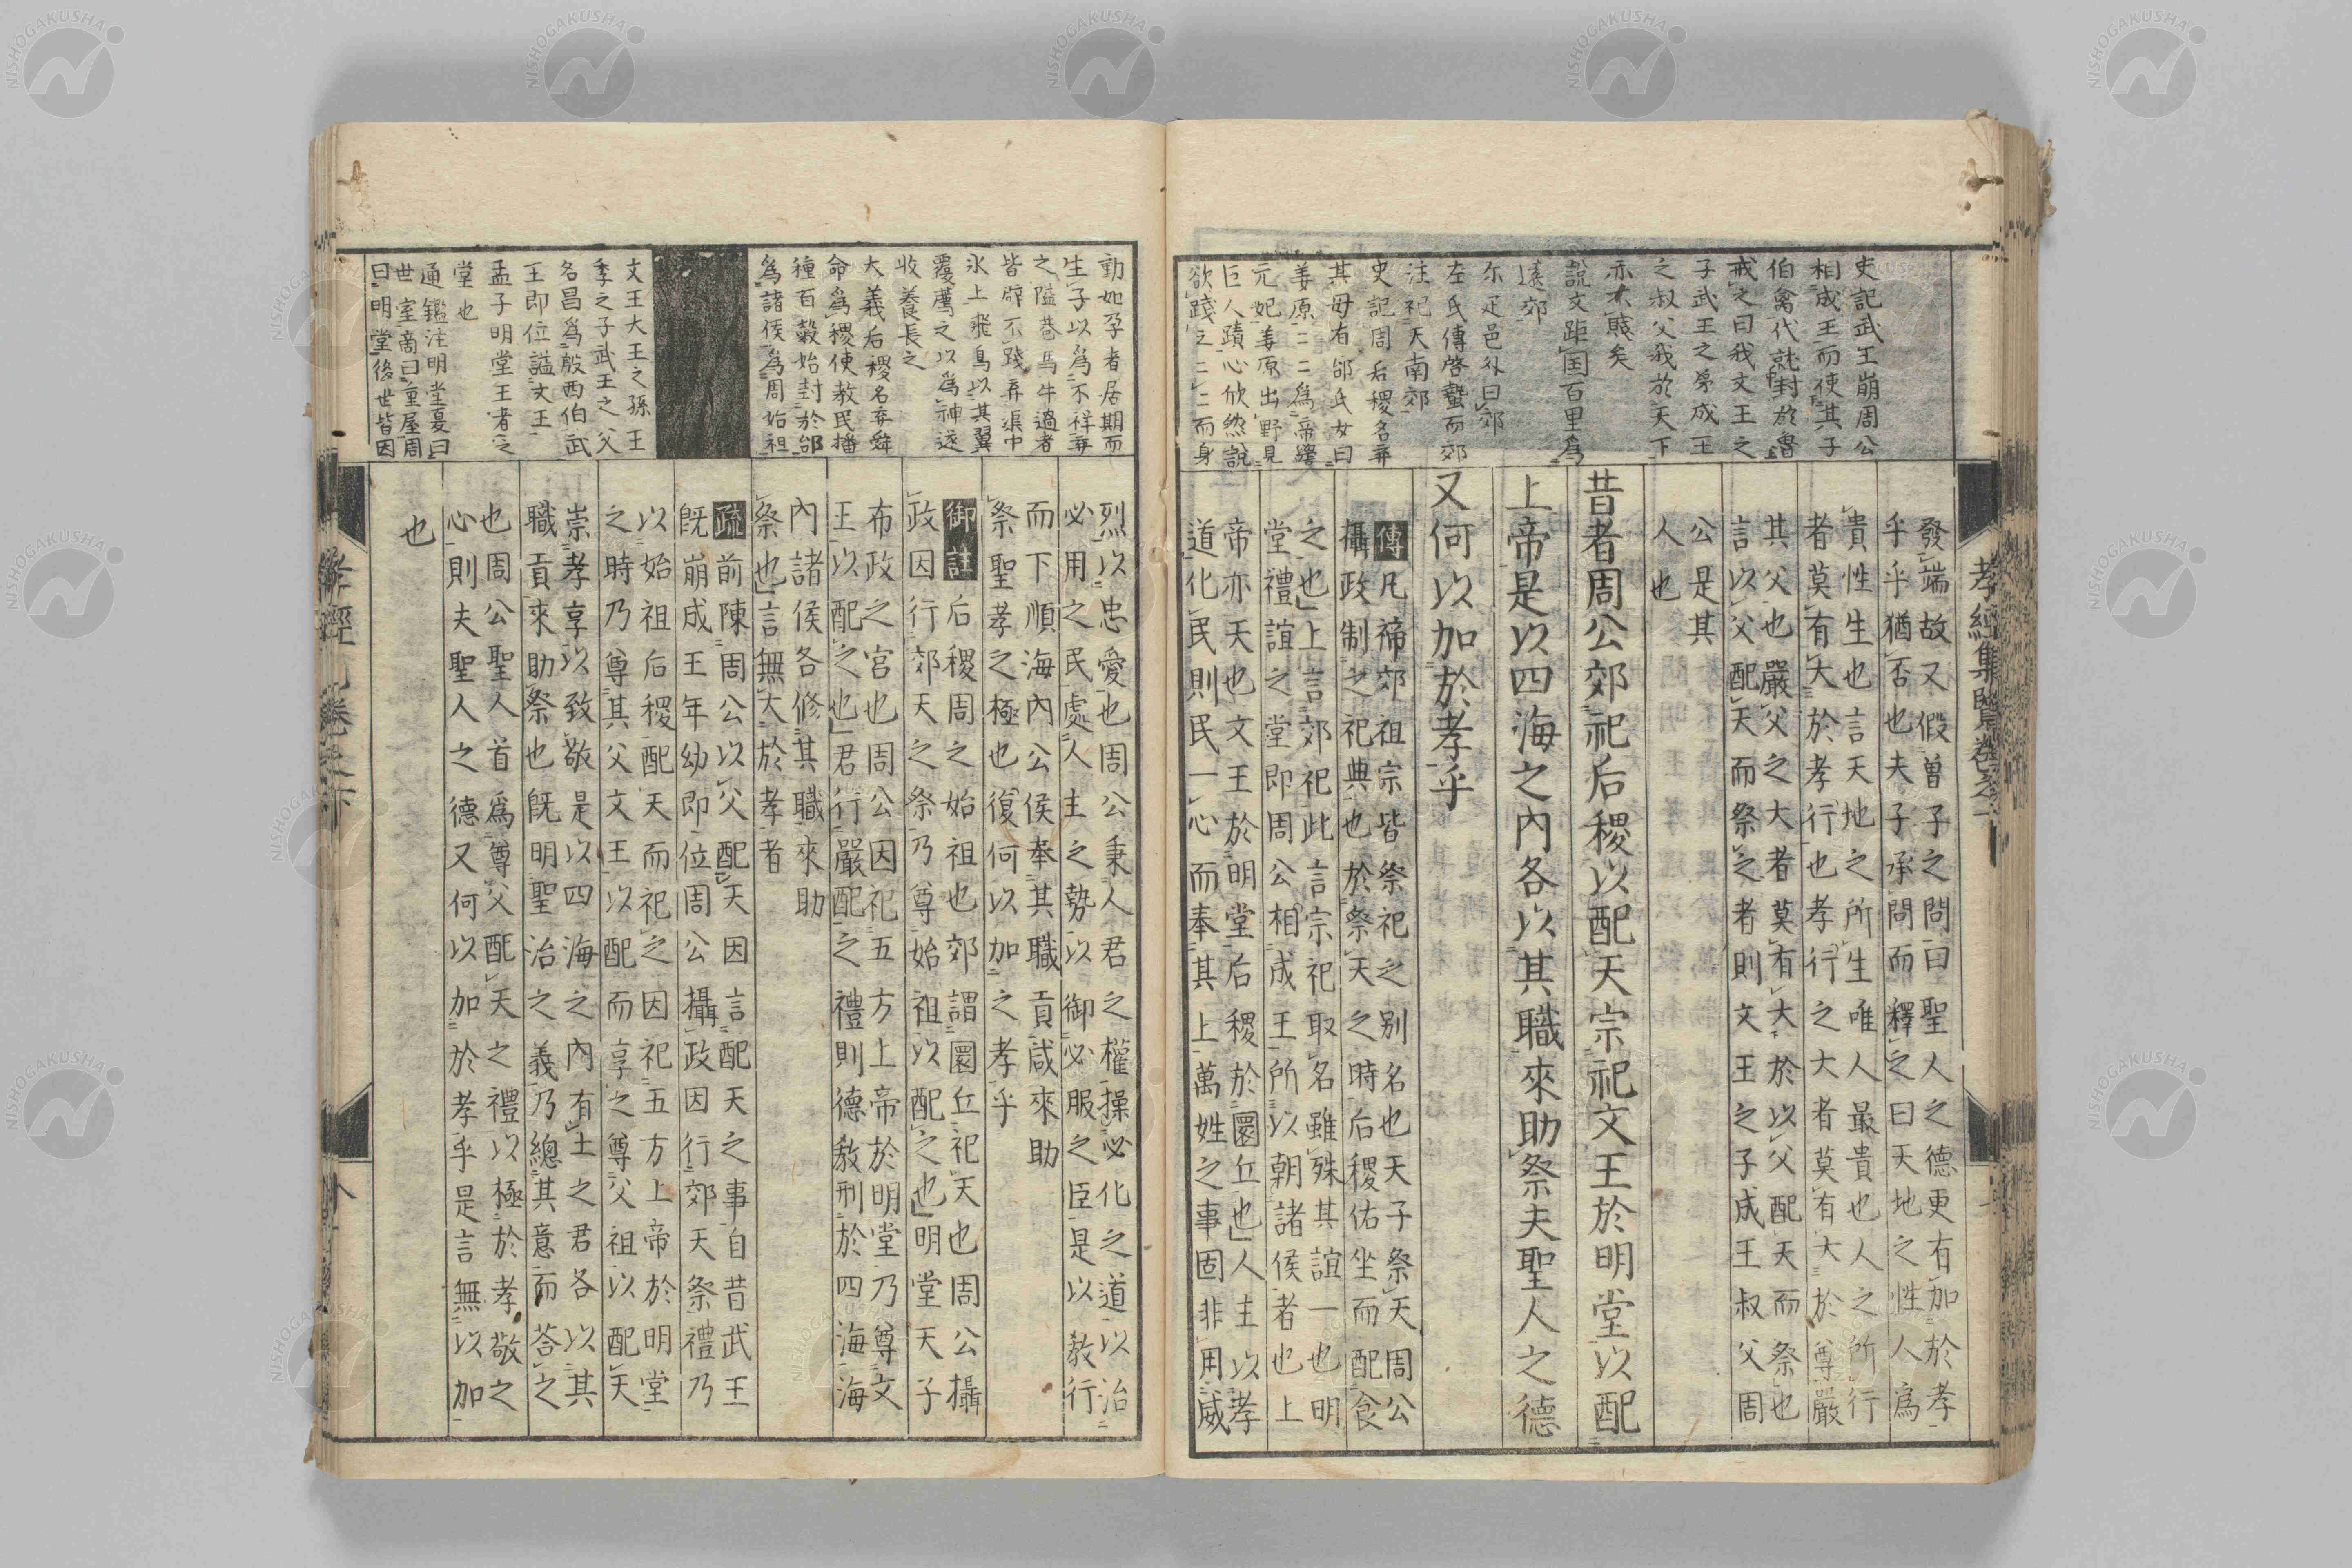 史記武王崩周公
相成王而使其子
伯禽代就封於魯
戒之曰我文王之
子武王之弟成王
之叔父我於天下
亦不賤矣
說文距国百里為
遠郊
尓疋邑外曰郊
左氏傳啓蟄而郊
注祀天南郊
史記周后稷名弃
其母有邰氏女曰
姜原二二為帝嚳
元妃姜原出野見
巨人蹟心欣然說
欲踐之二二而身
發端故又假曽子之問曰聖人之德更有加於孝
乎乎猶否也夫子承問而釋之曰天地之性人為
貴性生也言天地之所生唯人最貴也人之所行
者莫有大於孝行也孝行之大者莫有大於尊嚴
其父也嚴父之大者莫有大於以父配天而祭也
言以父配天而祭之者則文王之子成王叔父周
公是其
人也
昔者周公郊祀后稷以配天宗祀文王於明堂以配
上帝是以四海之內各以其職來助祭夫聖人之德
又何以加於孝乎
傳凡禘郊祖宗皆祭祀之别名也天子祭天周公
攝政制之祀典也於祭天之時后稷佑坐而配食
之也上言郊祀此言宗祀取名雖殊其誼一也明
堂禮誼之堂即周公相成王所以朝諸侯者也上
帝亦天也文王於明堂后稷於圜丘也人主以孝
道化民則民一心而奉其上萬姓之事固非用威
孝經集覽卷之
動如孕者居期而
生子以為不祥弃
之隘巷馬牛過者
皆辟不踐弃渠中
氷上飛鳥以其翼
覆薦之以為神遂
收養長之
大義后稷名弃舜
命為稷使教民播
種百穀始封於邰
為諸侯為周始祖
文王大王之孫王
季之子武王之父
名昌為殷西伯武
王即位謚文王
孟子明堂王者之
堂也
通鑑注明堂夏曰
世室商曰重屋周
曰明堂後世皆因
烈以忠愛也周公秉人君之權操必化之道以治
必用之民處人主之勢以御必服之臣是以教行
而下順海內公侯奉其職貢咸來助
祭聖孝之極也復何以加之孝乎
御註后稷周之始祖也郊謂圜丘祀天也周公攝
政因行郊天之祭乃尊始祖以配之也明堂天子
布政之宮也周公因祀五方上帝於明堂乃尊文
王以配之也君行嚴配之禮則德教刑於四海海
內諸侯各修其職來助
祭也言無大於孝者
疏前陳周公以父配天因言配天之事自昔武王
既崩成王年幼即位周公攝政因行郊天祭禮乃
以始祖后稷配天而祀之因祀五方上帝於明堂
之時乃尊其父文王以配而享之尊父祖以配天
崇孝享以致敬是以四海之內有土之君各以其
職貢來助祭也既明聖治之義乃總其意而荅之
也周公聖人首為尊父配天之禮以極於孝敬之
心則夫聖人之德又何以加於孝乎是言無以加
也